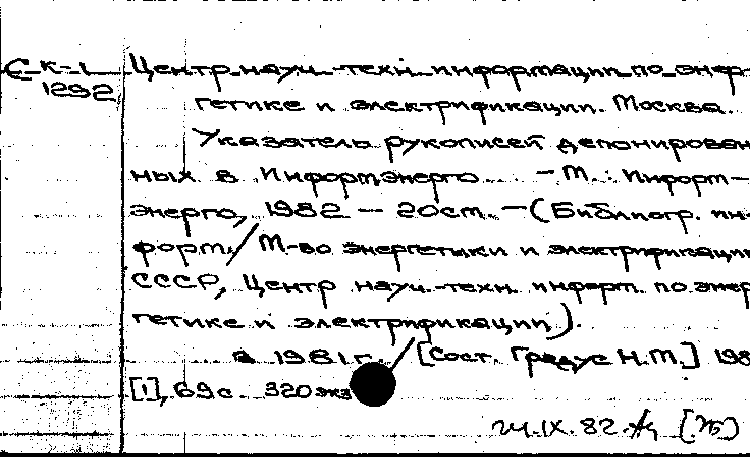 С К-1 Центр науч.-техн. информации по энер-
1292
гетике и электрификации. Москва.
Указатель рукописей депонирован-
ных в Информэнерго. - М.: Информ-
энерго, 1982 — 20см. - (Библиогр. ин-
форм. / М-во энергетики и электрификации
СССР, Центр науч.-техн. информ. по энер-
гетике и электрификации).
в 1981 г. / [Сост. Градус Н.М.] 198
[1], 69с 320 экз
24.IX.82.